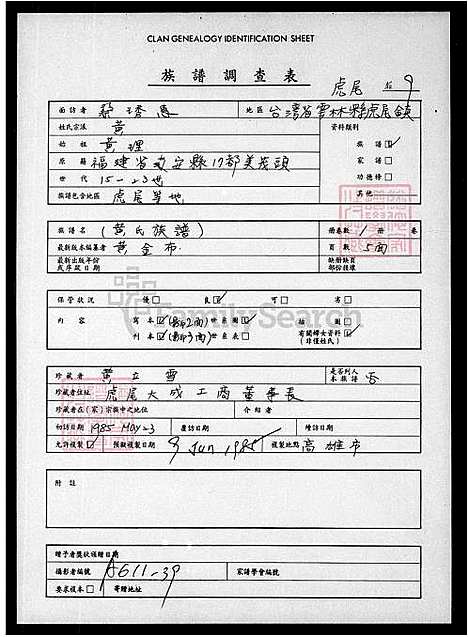 CLAN GENEALOGY IDENTIFICATION SHEET
族譜調查表
虎尾 9
面訪者 地區 台灣省雲林縣虎尾鎮
姓氏宗派 黃 資料類別
始祖 黃理 族譜 ☑
原籍 福建省南安縣17都美茂頭 家譜 □
世代 15-23世 功德榜 □
族譜包含地區 虎尾等地 其他
族譜名 (黃氏族譜) 冊卷數 1 冊 卷
最新版本編纂者 黃金布 頁數 5面
最新出版年份或序跋日期 缺冊缺頁部份註壞
保管狀況 優 □ 良 ☑ 可 □ 劣 □
內容 寫本 ☑ (影2面) 世系圖 ☑ 插圖 □
刊本 ☑ (影3面) 世系表 □ 有關婦女資料 ☑ (非僅姓氏)
FamilySearch
珍藏者 黃立雪 是否列入本族譜 否
珍藏者住址 虎尾大成工商董事長
珍藏者在(家)宗族中之地位 介紹者
初訪日期 1985-MAY-23 覆訪日期 續訪日期
允許複製 ☑ 預擬複製日期 9 Jun 1985 複製地點 高雄市
附註
贈予者獎狀頒贈日期
攝影者編號 A611-39 家譜學會編號
要求複本 □ 寄贈地址